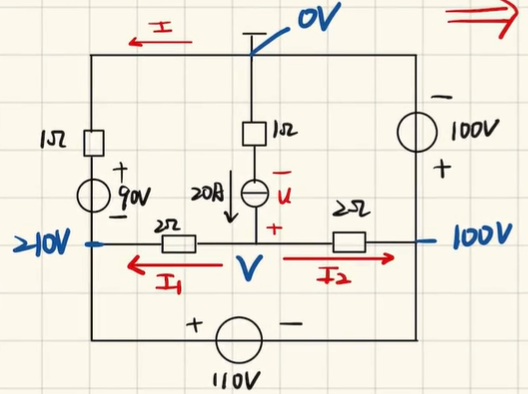 I
0V
1Ω
1Ω
−
100V
+
+
90V
−
20A
−
u
+
2Ω
2Ω
210V
100V
V
I₁
I₂
+
−
110V